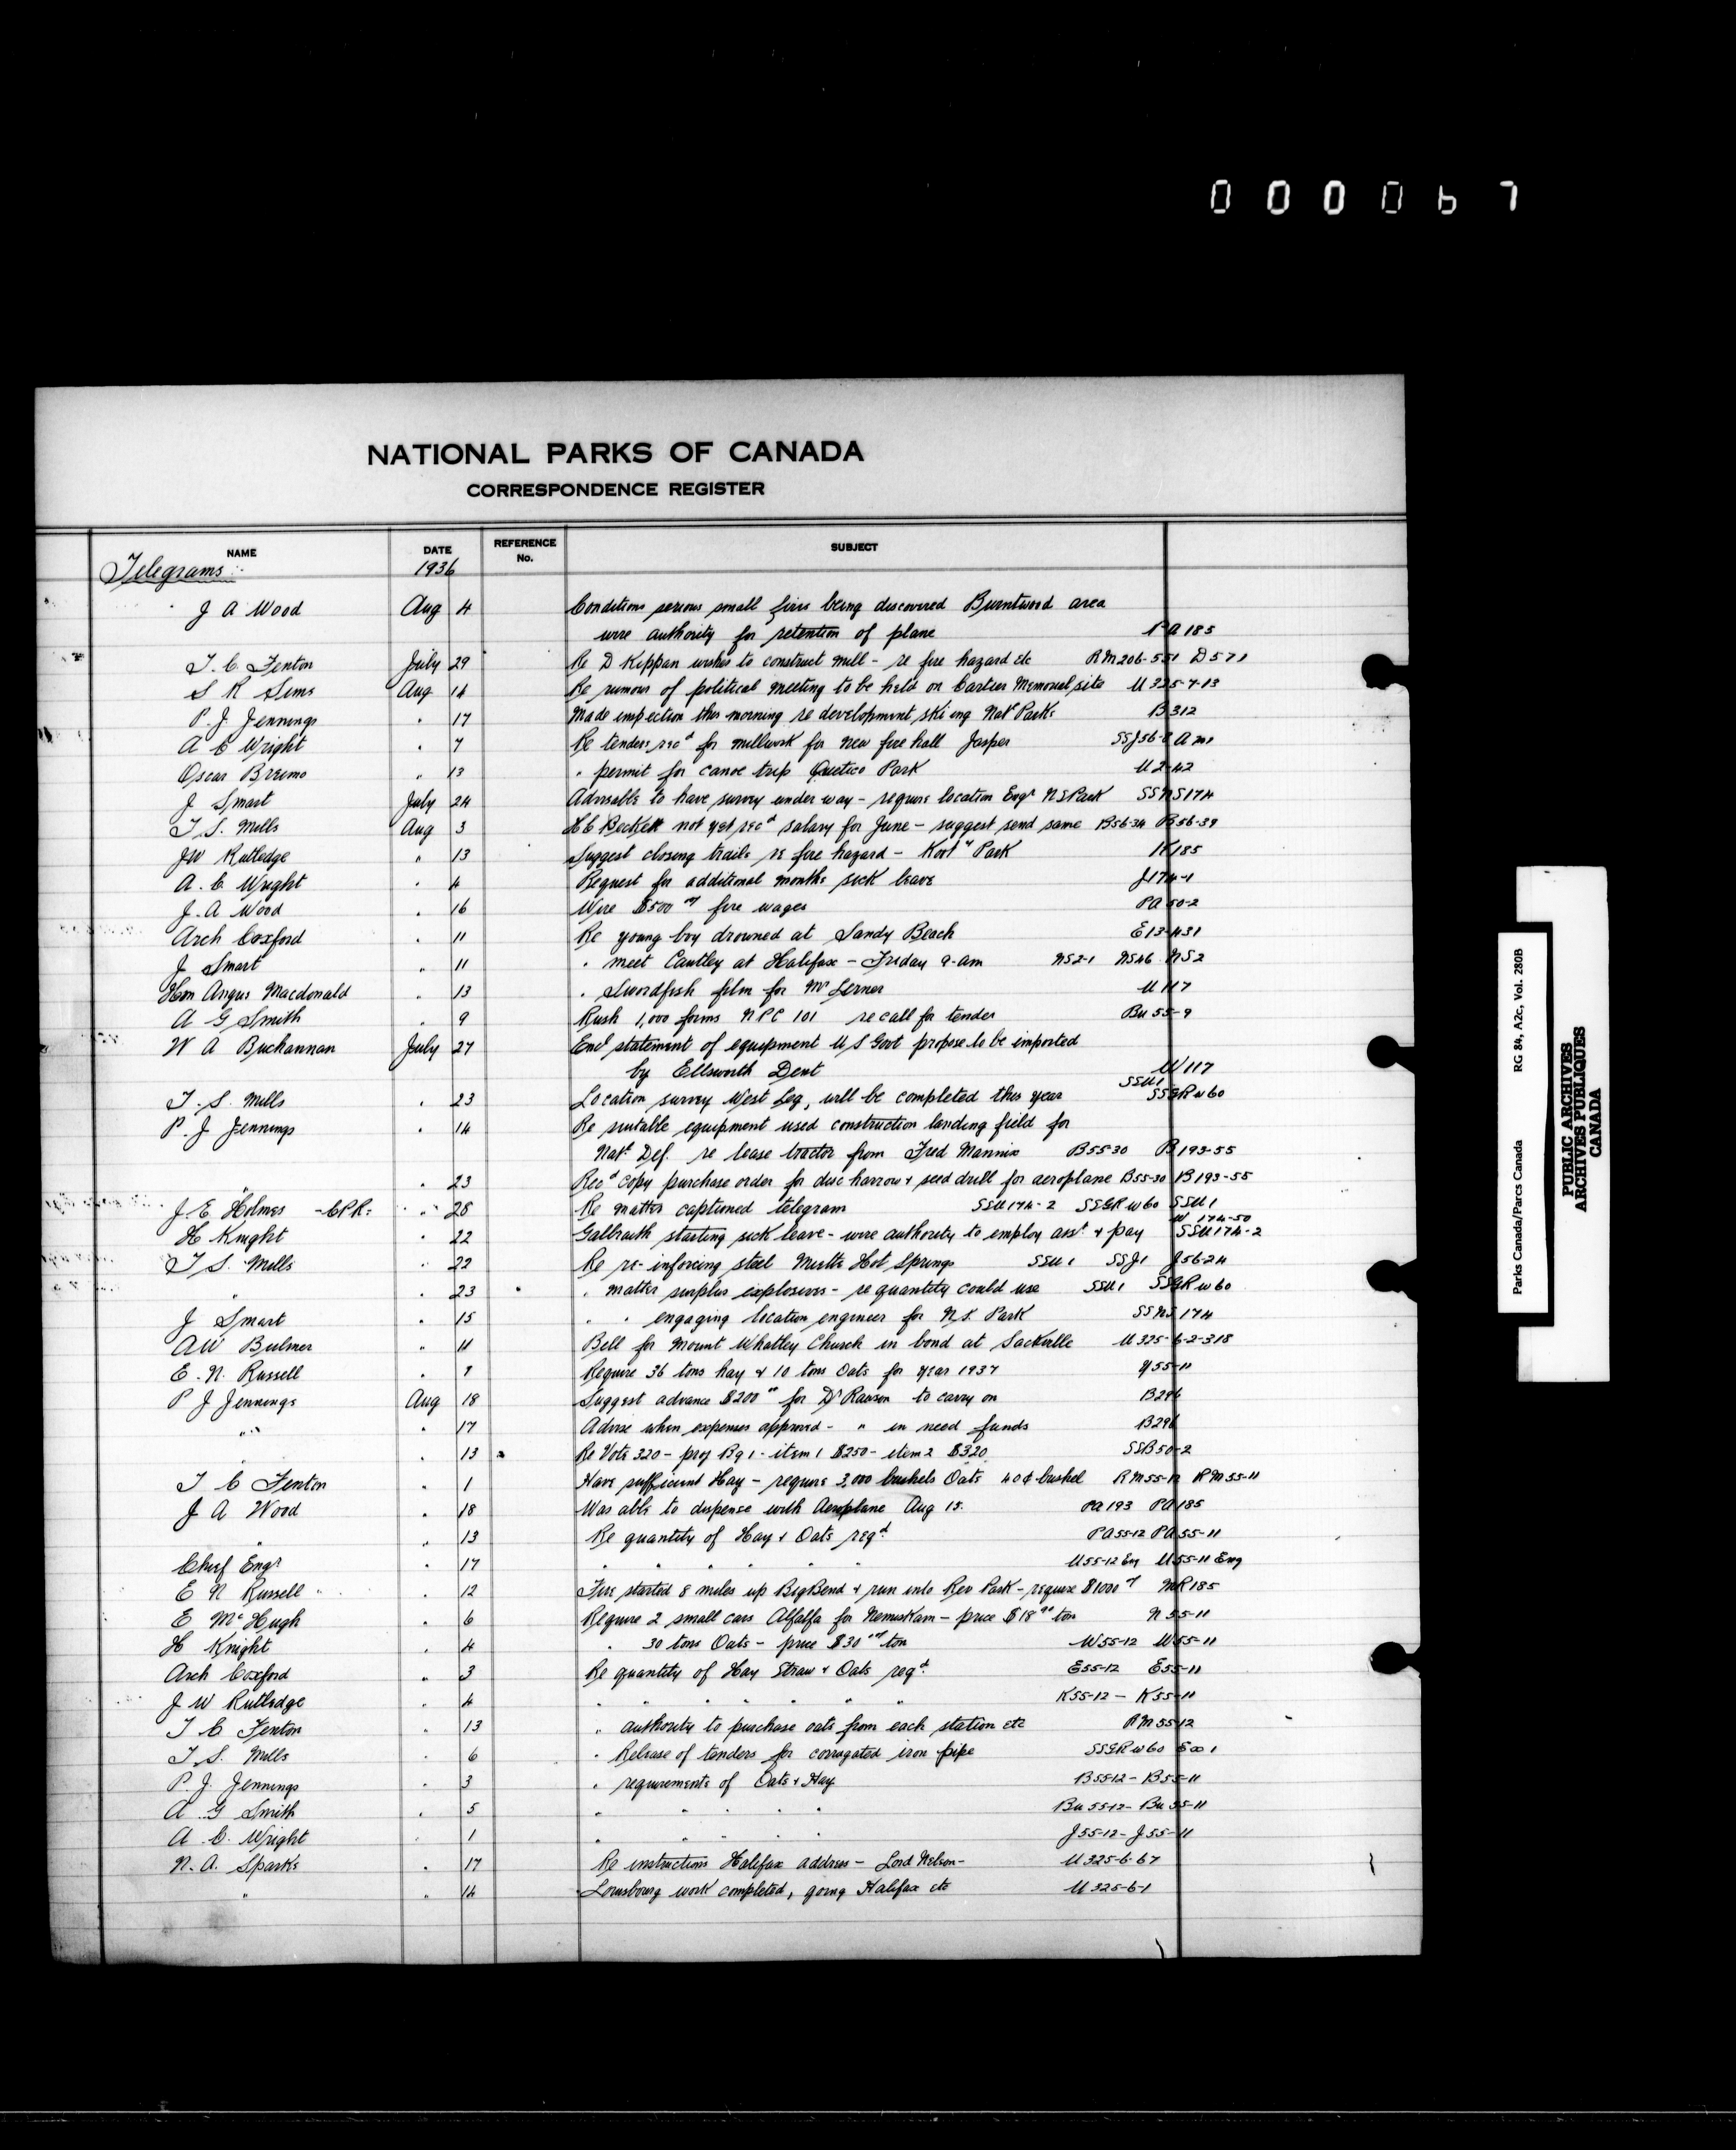 000067
NATIONAL PARKS OF CANADA
CORRESPONDENCE REGISTER
NAME DATE REFERENCE No. SUBJECT
Telegrams 1936
J A Wood Aug 4 Conditions serious small fires being discovered Burntwood area
wire authority for retention of plane PA 185
T. C. Fenton July 29 Re D Kippan wishes to construct mill - re fire hazard etc RM206-551 D571
S R Sims Aug 14 Re rumour of political meeting to be held on Cartier Memorial site U 325-7-13
P. J. Jennings " 17 Made inspection this morning re development skiing Natl Parks B312
A C Wright " 7 Re tenders recd for millwork for new fire hall Jasper SSJ56-2
Oscar Bremo " 13 " permit for canoe trip Quetico Park U2-42
J Smart July 24 Advisable to have survey under way - require location Engr NS Park SSNS174
T S. Mills Aug 3 H C Beckett not yet recd salary for June - suggest send same B56-34 B56-39
JW Rutledge " 13 Suggest closing trails re fire hazard - Koot'y Park K185
A. C. Wright " 4 Request for additional months sick leave J174-1
J. A Wood " 16 Wire $500 fire wages PA 50-2
Arch Coxford " 11 Re young boy drowned at Sandy Beach E13-431
J Smart " 11 " meet Cautley at Halifax - Friday 9-am NS2-1 NS46 NS2
Hon Angus Macdonald " 13 " Swordfish film for Mr Lerner U117
A G Smith " 9 Rush 1,000 forms NPC 101 re call for tender Bu 55-9
W A Buchannan July 27 Encl statement of equipment U S Govt propose to be imported
by Ellsworth Dent W117
SSU1
T. S. Mills " 23 Location survey West Leg, will be completed this year SSGRW60
P. J Jennings " 14 Re suitable equipment used construction landing field for
Natl Def. re lease tractor from Fred Mannix B55-30 B193-55
" " 23 Recd copy purchase order for disc harrow & seed drill for aeroplane B55-30 B193-55
J E Holmes - CPR. " 28 Re matter captioned telegram SSU174-2 SSGRW60 SSU1
W 174-50
H Knight " 22 Galbraith starting sick leave - wire authority to employ asst & pay SSU174-2
T S. Mills " 22 Re re-inforcing steel Miette Hot Springs SSU1 SSJ1 J56-24
" " 23 " matter surplus explosives - re quantity could use SSU1 SSGRW60
J Smart " 15 " " engaging location engineer for N.S. Park SSNS174
AW Bulmer " 11 Bell for Mount Whatley Church in bond at Sackville U325-6-2-318
E. N. Russell " 7 Require 36 tons hay & 10 tons Oats for year 1937 Y55-11
P J Jennings Aug 18 Suggest advance $200 for Dr Rawson to carry on B296
" " 17 Advise when expenses approved - " in need funds B296
" " 13 Re Vote 320 - proj Bg 1 - item 1 $250 - item 2 $320 SSB50-2
T C Fenton " 1 Have sufficient Hay - require 3,000 bushels Oats 40¢ bushel RM55-12 RM55-11
J A Wood " 18 Was able to dispense with Aeroplane Aug 15. PA 193 PA185
" " 13 Re quantity of Hay & Oats reqd. PA55-12 PA55-11
Chief Engr " 17 " " " " " " U55-12 Eng U55-11 Eng
E N Russell " 12 Fire started 8 miles up Big Bend & run into Rev Park - require $1000 MR185
E McHugh " 6 Require 2 small cars Alfalfa for Nemiskam - price $18 ton N55-11
H Knight " 4 " 30 tons Oats - price $30 ton W55-12 W55-11
Arch Coxford " 3 Re quantity of Hay Straw & Oats reqd. E55-12 E55-11
J W Rutledge " 4 " " " " " " " K55-12 - K55-11
T C Fenton " 13 " authority to purchase oats from each station etc RM55-12
T S. Mills " 6 " Release of tenders for corrugated iron pipe SSGRW60
P. J. Jennings " 3 " requirements of Oats & Hay B55-12 - B55-11
A G Smith " 5 " " " " " Bu 55-12 - Bu 55-11
A. C. Wright " 1 " " " " J55-12 - J55-11
N. A. Sparks " 17 Re instructions Halifax address - Lord Nelson - U325-6-67
" " 14 Louisbourg work completed, going Halifax etc U325-6-1
Parks Canada/Parcs Canada RG 84, A2c, Vol. 280B
PUBLIC ARCHIVES
ARCHIVES PUBLIQUES
CANADA